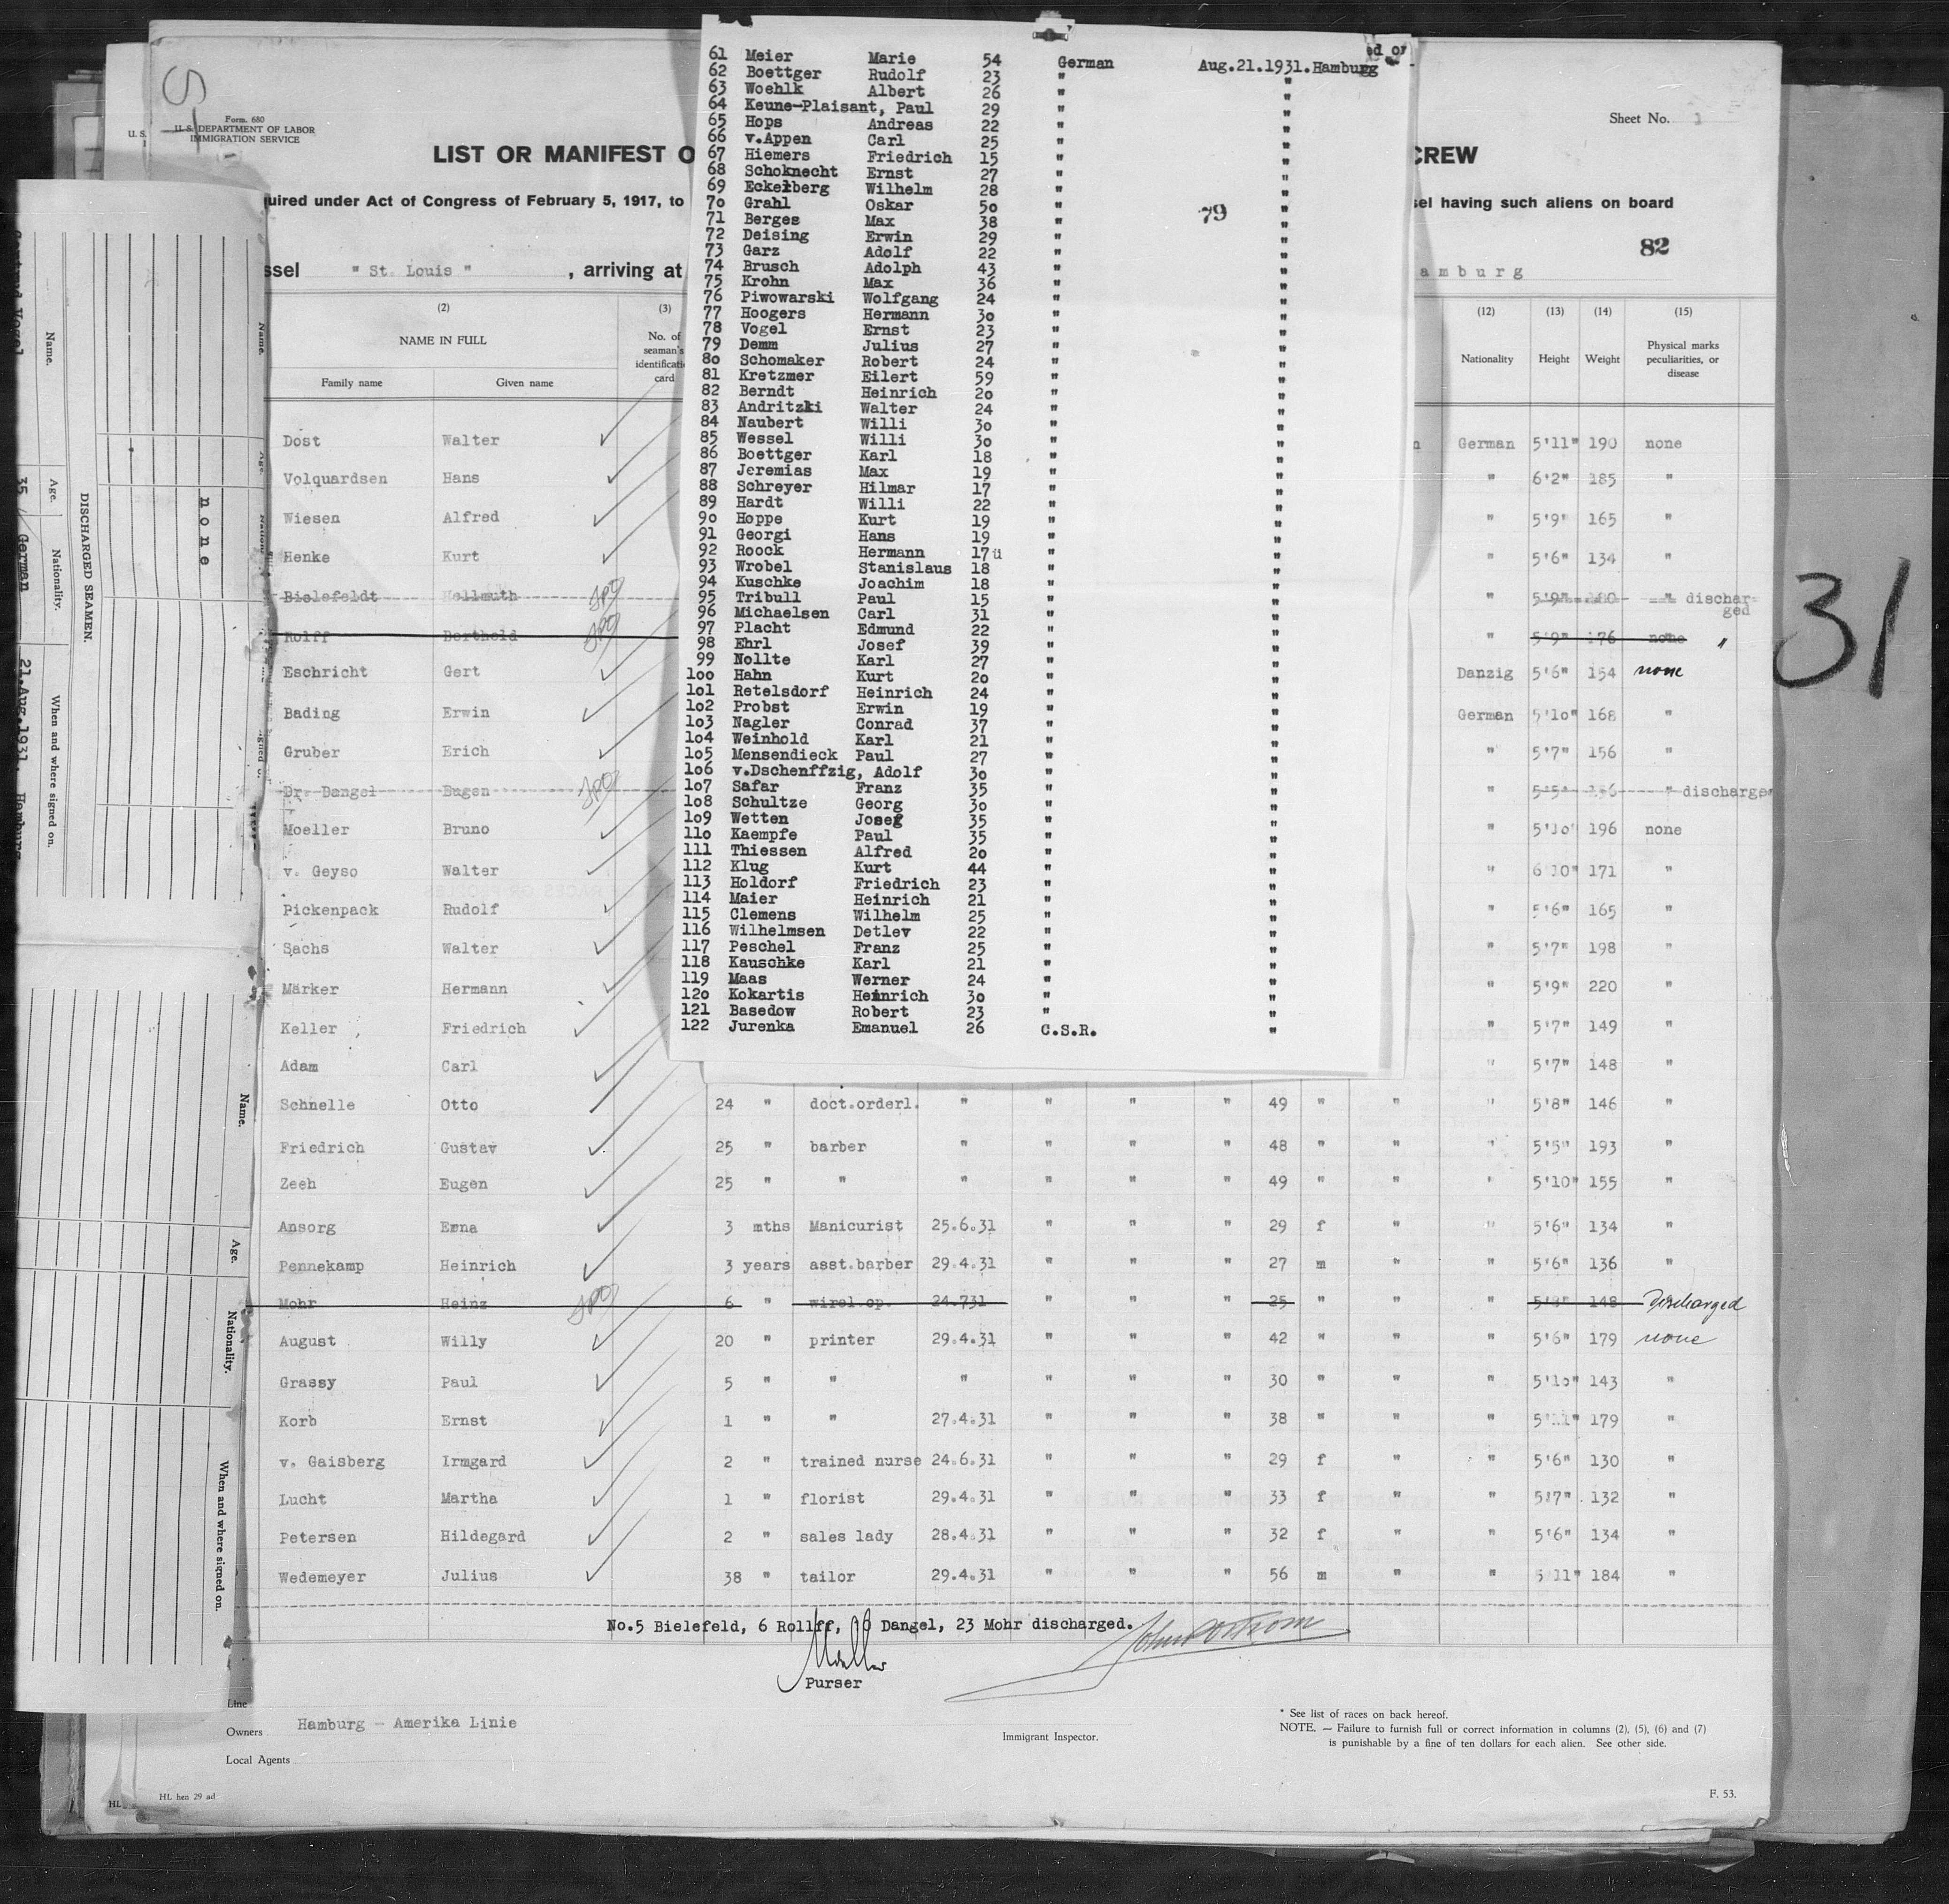 Form. 680
U.S. DEPARTMENT OF LABOR
IMMIGRATION SERVICE
Sheet No. 1
LIST OR MANIFEST O
CREW
quired under Act of Congress of February 5, 1917, to
sel having such aliens on board
82
ssel " St. Louis " , arriving at
amburg
(2) (3) (12) (13) (14) (15)
NAME IN FULL
Family name Given name
No. of seaman's identificati card
Nationality Height Weight Physical marks peculiarities, or disease
61 Meier Marie 54 German Aug.21.1931.Hamburg
62 Boettger Rudolf 23 " "
63 Woehlk Albert 26 " "
64 Keune-Plaisant, Paul 29 " "
65 Hops Andreas 22 " "
66 v.Appen Carl 25 " "
67 Hiemers Friedrich 15 " "
68 Schoknecht Ernst 27 " "
69 Eckelberg Wilhelm 28 " "
70 Grahl Oskar 50 " "
79
71 Berges Max 38 " "
72 Deising Erwin 29 " "
73 Garz Adolf 22 " "
74 Brusch Adolph 43 " "
75 Krohn Max 36 " "
76 Piwowarski Wolfgang 24 " "
77 Hoogers Hermann 30 " "
78 Vogel Ernst 23 " "
79 Demm Julius 27 " "
80 Schomaker Robert 24 " "
81 Kretzmer Eilert 59 " "
82 Berndt Heinrich 20 " "
83 Andritzki Walter 24 " "
84 Naubert Willi 30 " "
85 Wessel Willi 30 " "
86 Boettger Karl 18 " "
87 Jeremias Max 19 " "
88 Schreyer Hilmar 17 " "
89 Hardt Willi 22 " "
90 Hoppe Kurt 19 " "
91 Georgi Hans 19 " "
92 Roock Hermann 17ü " "
93 Wrobel Stanislaus 18 " "
94 Kuschke Joachim 18 " "
95 Tribull Paul 15 " "
96 Michaelsen Carl 31 " "
97 Placht Edmund 22 " "
98 Ehrl Josef 39 " "
99 Nollte Karl 27 " "
100 Hahn Kurt 20 " "
101 Retelsdorf Heinrich 24 " "
102 Probst Erwin 19 " "
103 Nagler Conrad 37 " "
104 Weinhold Karl 21 " "
105 Mensendieck Paul 27 " "
106 v.Dschenffzig, Adolf 30 " "
107 Safar Franz 35 " "
108 Schultze Georg 30 " "
109 Wetten Josef 35 " "
110 Kaempfe Paul 35 " "
111 Thiessen Alfred 20 " "
112 Klug Kurt 44 " "
113 Holdorf Friedrich 23 " "
114 Maier Heinrich 21 " "
115 Clemens Wilhelm 25 " "
116 Wilhelmsen Detlev 22 " "
117 Peschel Franz 25 " "
118 Kauschke Karl 21 " "
119 Maas Werner 24 " "
120 Kokartis Heinrich 30 " "
121 Basedow Robert 23 " "
122 Jurenka Emanuel 26 C.S.R. "
Dost Walter German 5'11" 190 none
Volquardsen Hans " 6'2" 185 "
Wiesen Alfred " 5'9" 165 "
Henke Kurt " 5'6" 134 "
Bielefeldt Hellmuth " 5'9" 180 " dischar-
ged
Rolff Berthold " 5'9" 176 none "
Eschricht Gert Danzig 5'6" 154 none
Bading Erwin German 5'10" 168 "
Gruber Erich " 5'7" 156 "
Dr. Dangel Eugen " 5'5" 156 " discharged
Moeller Bruno " 5'10" 196 none
v. Geyso Walter " 6'10" 171 "
Pickenpack Rudolf " 5'6" 165 "
Sachs Walter " 5'7" 198 "
Märker Hermann " 5'9" 220 "
Keller Friedrich " 5'7" 149 "
Adam Carl " 5'7" 148 "
Schnelle Otto 24 " doct.orderl. " " " " 49 " " " 5'8" 146 "
Friedrich Gustav 25 " barber " " " " 48 " " " 5'5" 193 "
Zeeh Eugen 25 " " " " " " 49 " " " 5'10" 155 "
Ansorg Erna 3 mths Manicurist 25.6.31 " " " 29 f " " 5'6" 134 "
Pennekamp Heinrich 3 years asst.barber 29.4.31 " " " 27 m " " 5'6" 136 "
Mohr Heinz 6 " wirel.op. 24.731 " " " 25 " " " 5'8" 148 Discharged
August Willy 20 " printer 29.4.31 " " " 42 " " " 5'6" 179 none
Grassy Paul 5 " " " " " " 30 " " " 5'10" 143 "
Korb Ernst 1 " " 27.4.31 " " " 38 " " " 5'11" 179 "
v. Gaisberg Irmgard 2 " trained nurse 24.6.31 " " " 29 f " " 5'6" 130 "
Lucht Martha 1 " florist 29.4.31 " " " 33 f " " 5'7" 132 "
Petersen Hildegard 2 " sales lady 28.4.31 " " " 32 f " " 5'6" 134 "
Wedemeyer Julius 38 " tailor 29.4.31 " " " 56 m " " 5'11" 184 "
No.5 Bielefeld, 6 Rollff, Dangel, 23 Mohr discharged.
Moeller
Purser
Line
Owners Hamburg - Amerika Linie
Local Agents
Immigrant Inspector.
* See list of races on back hereof.
NOTE. — Failure to furnish full or correct information in columns (2), (5), (6) and (7)
is punishable by a fine of ten dollars for each alien. See other side.
HL hen 29 ad
F. 53.
HL
31
DISCHARGED SEAMEN.
Name. Age. Nationality. When and where signed on.
Vogel 35 German 21.Aug.1931. Hamburg
none
Name. Age. Nationality. When and where signed on.